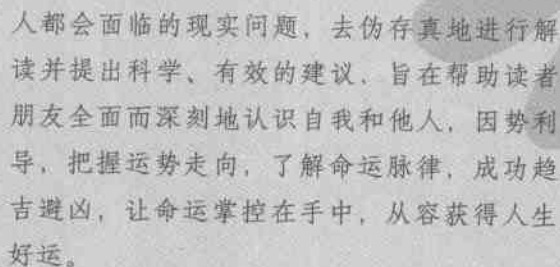 人都会面临的现实问题，去伪存真地进行解
读并提出科学、有效的建议，旨在帮助读者
朋友全面而深刻地认识自我和他人，因势利
导，把握运势走向，了解命运脉律，成功趋
吉避凶，让命运掌控在手中，从容获得人生
好运。